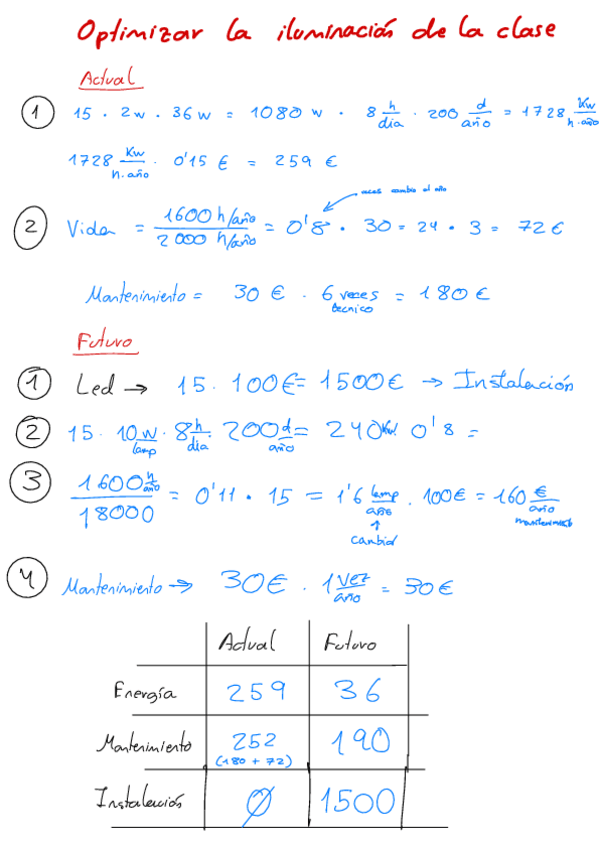 Optimizar la iluminación de la clase
Actual
① 15 · 2w · 36w = 1080 w · 8 h/dia · 200 d/año = 1728 Kw/h·año
1728 Kw/h·año · 0'15 € = 259 €
veces cambio al año
② Vida = 1600 h/año / 2000 h/año = 0'8 · 30 = 24 · 3 = 72 €
Mantenimiento = 30 € · 6 veces tecnico = 180 €
Futuro
① Led → 15 · 100€ = 1500€ → Instalación
② 15 · 10 w/lamp · 8 h/dia · 200 d/año = 240 Kw 0'8 =
③ 1600 h/año / 18000 = 0'11 · 15 = 1'6 lamp/año · 100€ = 160 €/año mantenimiento
↑
cambiar
④ Mantenimiento → 30€ · 1 vez/año = 30€
Actual Futuro
Energía 259 36
Mantenimiento 252 190
(180 + 72)
Instalación Ø 1500